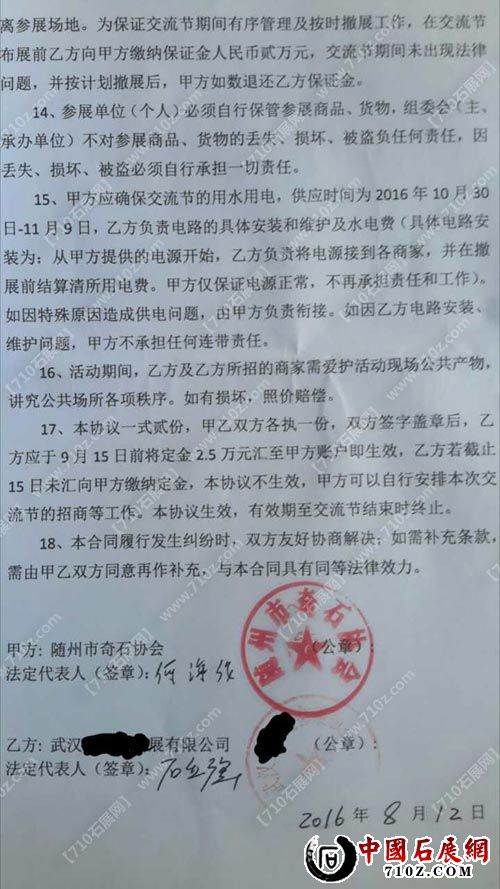 离参展场地。为保证交流节期间有序管理及按时撤展工作，在交流节
布展前乙方向甲方缴纳保证金人民币贰万元，交流节期间未出现法律
问题，并按计划撤展后，甲方如数退还乙方保证金。
14、参展单位（个人）必须自行保管参展商品、货物，组委会（主、
承办单位）不对参展商品、货物的丢失、损坏、被盗负任何责任，因
丢失、损坏、被盗必须自行承担一切责任。
15、甲方应确保交流节的用水用电，供应时间为 2016 年 10 月 30
日-11 月 9 日，乙方负责电路的具体安装和维护及水电费（具体电路安
装为：从甲方提供的电源开始，乙方负责将电源接到各商家，并在撤
展前结算清所用电费。甲方仅保证电源正常，不再承担责任和工作）。
如因特殊原因造成供电问题，由甲方负责衔接。如因乙方电路安装、
维护问题，甲方不承担任何连带责任。
16、活动期间，乙方及乙方所招的商家需爱护活动现场公共产物，
讲究公共场所各项秩序。如有损坏，照价赔偿。
17、本协议一式贰份，甲乙双方各执一份，双方签字盖章后，乙
方应于 9 月 15 日前将定金 2.5 万元汇至甲方账户即生效，乙方若截止
15 日未汇向甲方缴纳定金，本协议不生效，甲方可以自行安排本次交
流节的招商等工作。本协议生效，有效期至交流节结束时终止。
18、本合同履行发生纠纷时，双方友好协商解决；如需补充条款，
需由甲乙双方同意再作补充，与本合同具有同等法律效力。
甲方：随州市奇石协会 （公章）：
法定代表人（签章）：
随州市奇石协会
乙方：武汉 展有限公司 （公章）：
法定代表人（签章）：
2016 年 8 月 12 日
【710石展网】
www.710z.com
中國石展網
710Z.COM